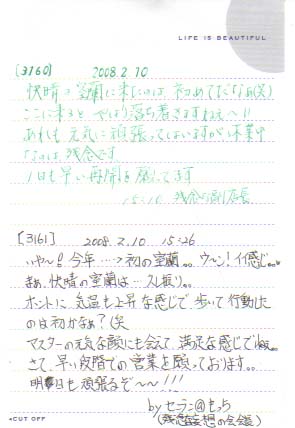 LIFE IS BEAUTIFUL
[3160] 2008.2.10
快晴の室蘭に来たのは、初めてだなぁ(笑)
ここに来ると やっぱり落ち着きますねぇ〜!!
あれも 元気に頑張って
なのは、残念です。
1日も早い再開を願ってます
15:10 残念な副店長
[3161] 2008.2.10 15:26
いや〜! 今年…→初の室蘭。。ウ〜ン!イイ感じ。。
まぁ、快晴の室蘭は…久し振り。。
ホントに 気温も上昇な感じで 歩いて行動した
のは初かなぁ?(笑
マスターの元気な顔にも会えて 満足な感じでね。。
さて、早い段階での営業を願っております。。
明日も頑張るぞ〜〜!!!
by セーラー@もっち
(残念妄想の会会長)
CUT OFF